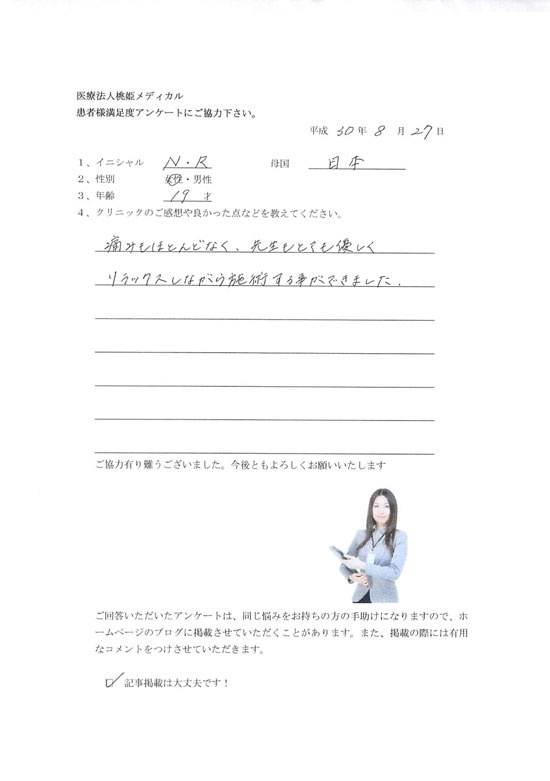 医療法人桃姫メディカル
患者様満足度アンケートにご協力下さい。
平成 30 年 8 月 27 日
1、イニシャル N・R 母国 日本
2、性別 女性・男性
3、年齢 19 才
4、クリニックのご感想や良かった点などを教えてください。
痛みもほとんどなく、先生もとても優しく
リラックスしながら施術する事ができました.
ご協力有り難うございました。今後ともよろしくお願いいたします
ご回答いただいたアンケートは、同じ悩みをお持ちの方の手助けになりますので、ホ
ームページのブログに掲載させていただくことがあります。また、掲載の際には有用
なコメントをつけさせていただきます。
☑ 記事掲載は大丈夫です！